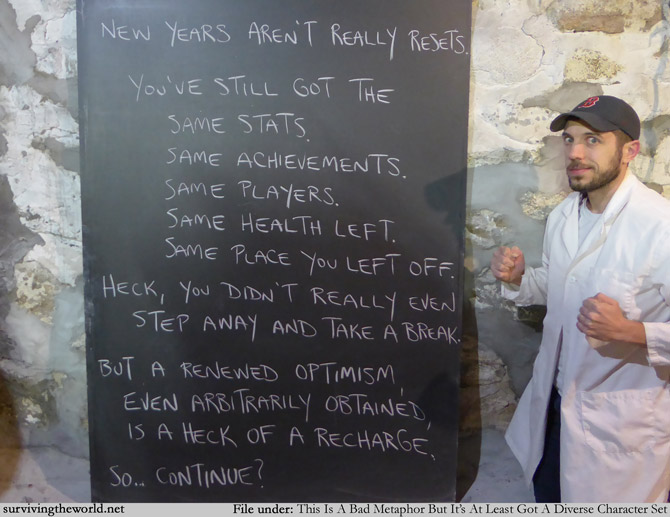 NEW YEARS AREN'T REALLY RESETS.
YOU'VE STILL GOT THE
SAME STATS.
SAME ACHIEVEMENTS.
SAME PLAYERS.
SAME HEALTH LEFT.
SAME PLACE YOU LEFT OFF.
HECK, YOU DIDN'T REALLY EVEN
STEP AWAY AND TAKE A BREAK.
BUT A RENEWED OPTIMISM,
EVEN ARBITRARILY OBTAINED,
IS A HECK OF A RECHARGE.
SO.. CONTINUE?
survivingtheworld.net File under: This Is A Bad Metaphor But It's At Least Got A Diverse Character Set